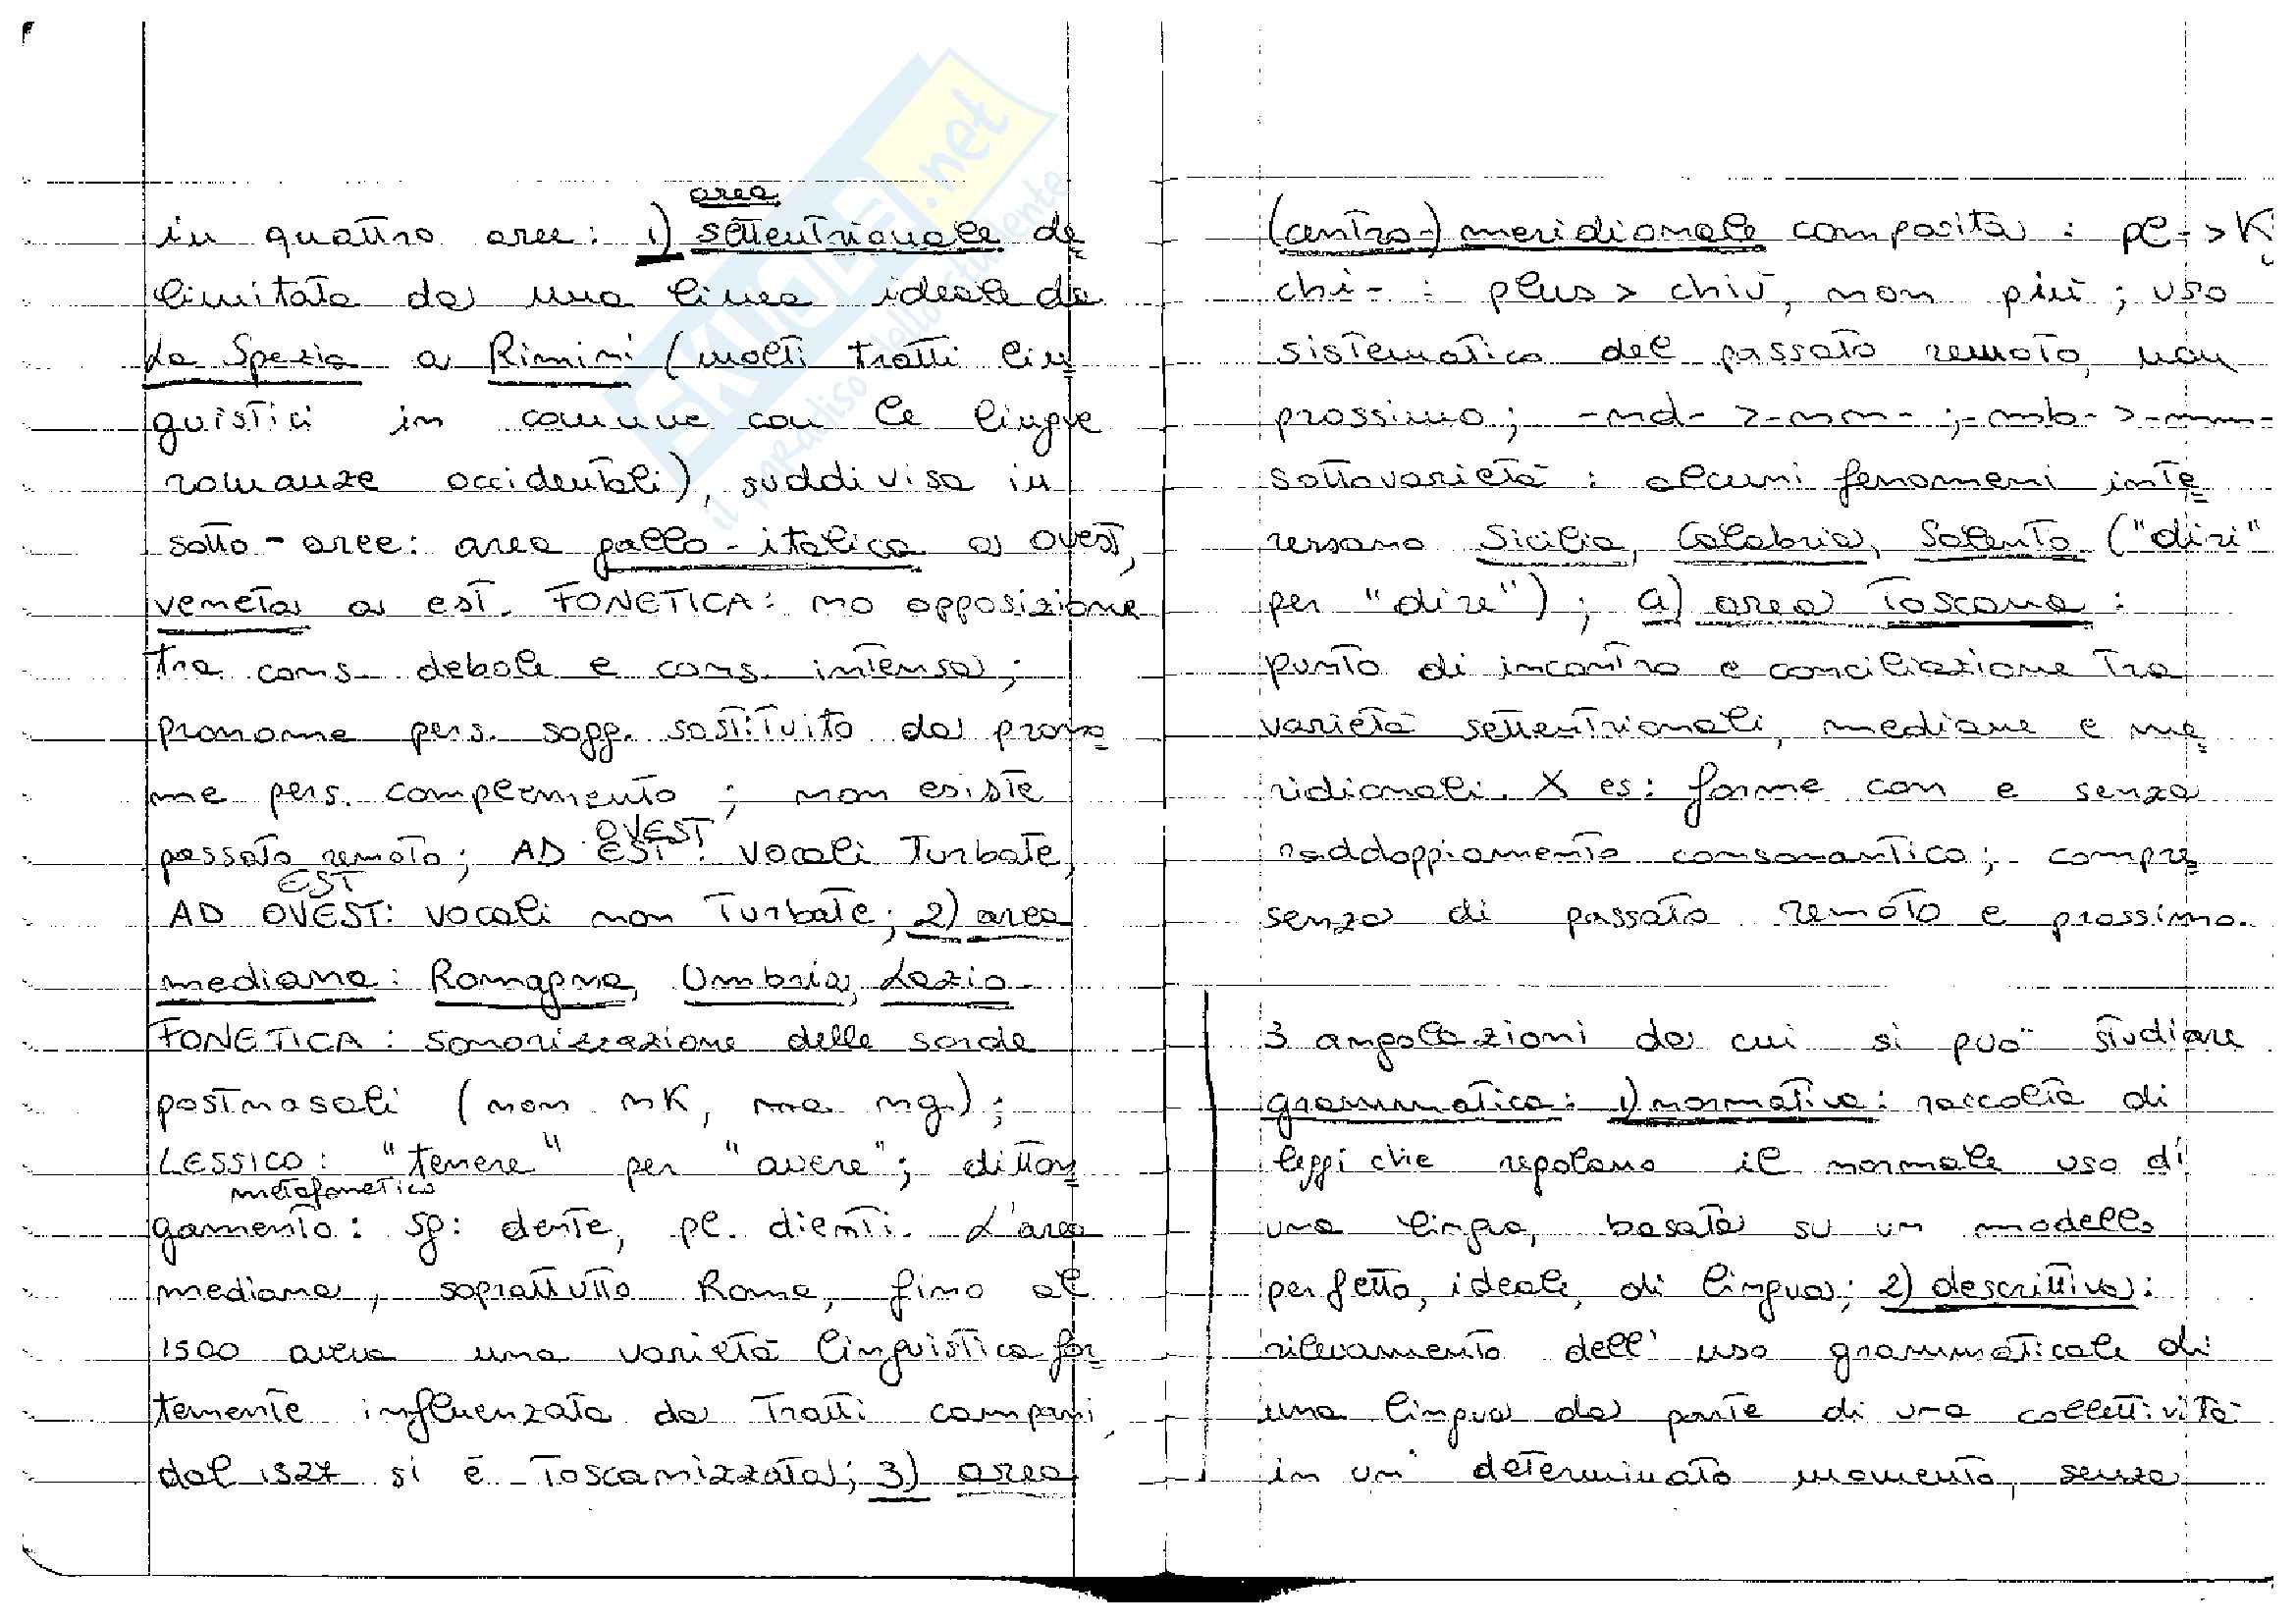 area
in quattro aree: 1) settentrionale de
limitata da una linea ideale da
La Spezia a Rimini (molti tratti lin
guistici in comune con le lingue
romanze occidentali), suddivisa in
sotto-aree: area gallo-italica a ovest,
veneta a est. FONETICA: no opposizione
tra cons. debole e cons. intensa;
pronome pers. sogg. sostituito da prono
me pers. complemento; non esiste
OVEST
passato remoto; AD EST: vocali turbate,
EST
AD OVEST: vocali non turbate; 2) area
mediana: Romagna, Umbria, Lazio
FONETICA: sonorizzazione delle sorde
postnasali (non nK, ma ng);
LESSICO: "tenere" per "avere"; ditton
metafonetico
gamento: sg: dente, pl. dienti. L'area
mediana, soprattutto Roma, fino al
1500 aveva una varietà linguistica for
temente influenzata da tratti campani,
dal 1527 si è toscanizzata; 3) area
(centro-) meridionale composita: pl- > K
chi-: plus > chiù, non più; uso
sistematico del passato remoto, non
prossimo; -nd- > -nn-; -mb- > -mm-
sottovarietà: alcuni fenomeni inte
ressano Sicilia, Calabria, Salento ("diri"
per "dire"); 4) area Toscana:
punto di incontro e conciliazione tra
varietà settentrionali, mediane e me
ridionali. X es: forme con e senza
raddoppiamento consonantico; compre
senza di passato remoto e prossimo.
3 angolazioni da cui si può studiare
grammatica: 1) normativa: raccolta di
leggi che regolano il normale uso di
una lingua, basata su un modello
perfetto, ideale, di lingua; 2) descrittiva:
rilevamento dell'uso grammaticale di
una lingua da parte di una collettività
in un determinato momento, senza
SKUOLA.net
il paradiso dello studente